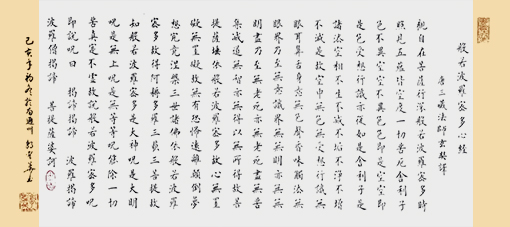 般若波羅蜜多心經
唐三藏法師玄奘譯
觀自在菩薩行深般若波羅蜜多時
照見五蘊皆空度一切苦厄舍利子
色不異空空不異色色即是空空即
是色受想行識亦復如是舍利子是
諸法空相不生不滅不垢不淨不增
不減是故空中無色無受想行識無
眼耳鼻舌身意無色聲香味觸法無
眼界乃至無意識界無無明亦無無
明盡乃至無老死亦無老死盡無苦
集滅道無智亦無得以無所得故菩
提薩埵依般若波羅蜜多故心無罣
礙無罣礙故無有恐怖遠離顛倒夢
想究竟涅槃三世諸佛依般若波羅
蜜多故得阿耨多羅三藐三菩提故
知般若波羅蜜多是大神咒是大明
咒是無上咒是無等等咒能除一切
苦真實不虛故說般若波羅蜜多咒
即說咒曰 揭諦揭諦 波羅揭諦
波羅僧揭諦 菩提薩婆訶
己亥年 於 通州